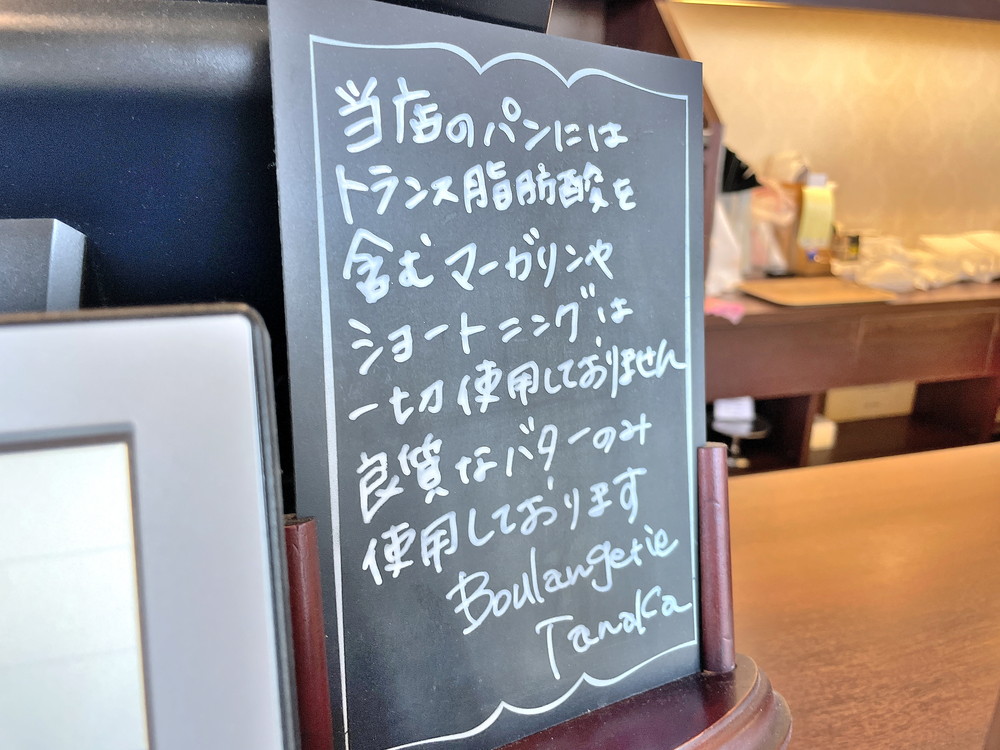 当店のパンには
トランス脂肪酸を
含むマーガリンや
ショートニングは
一切使用しておりません
良質なバターのみ
使用しております
Boulangerie
Tanaka